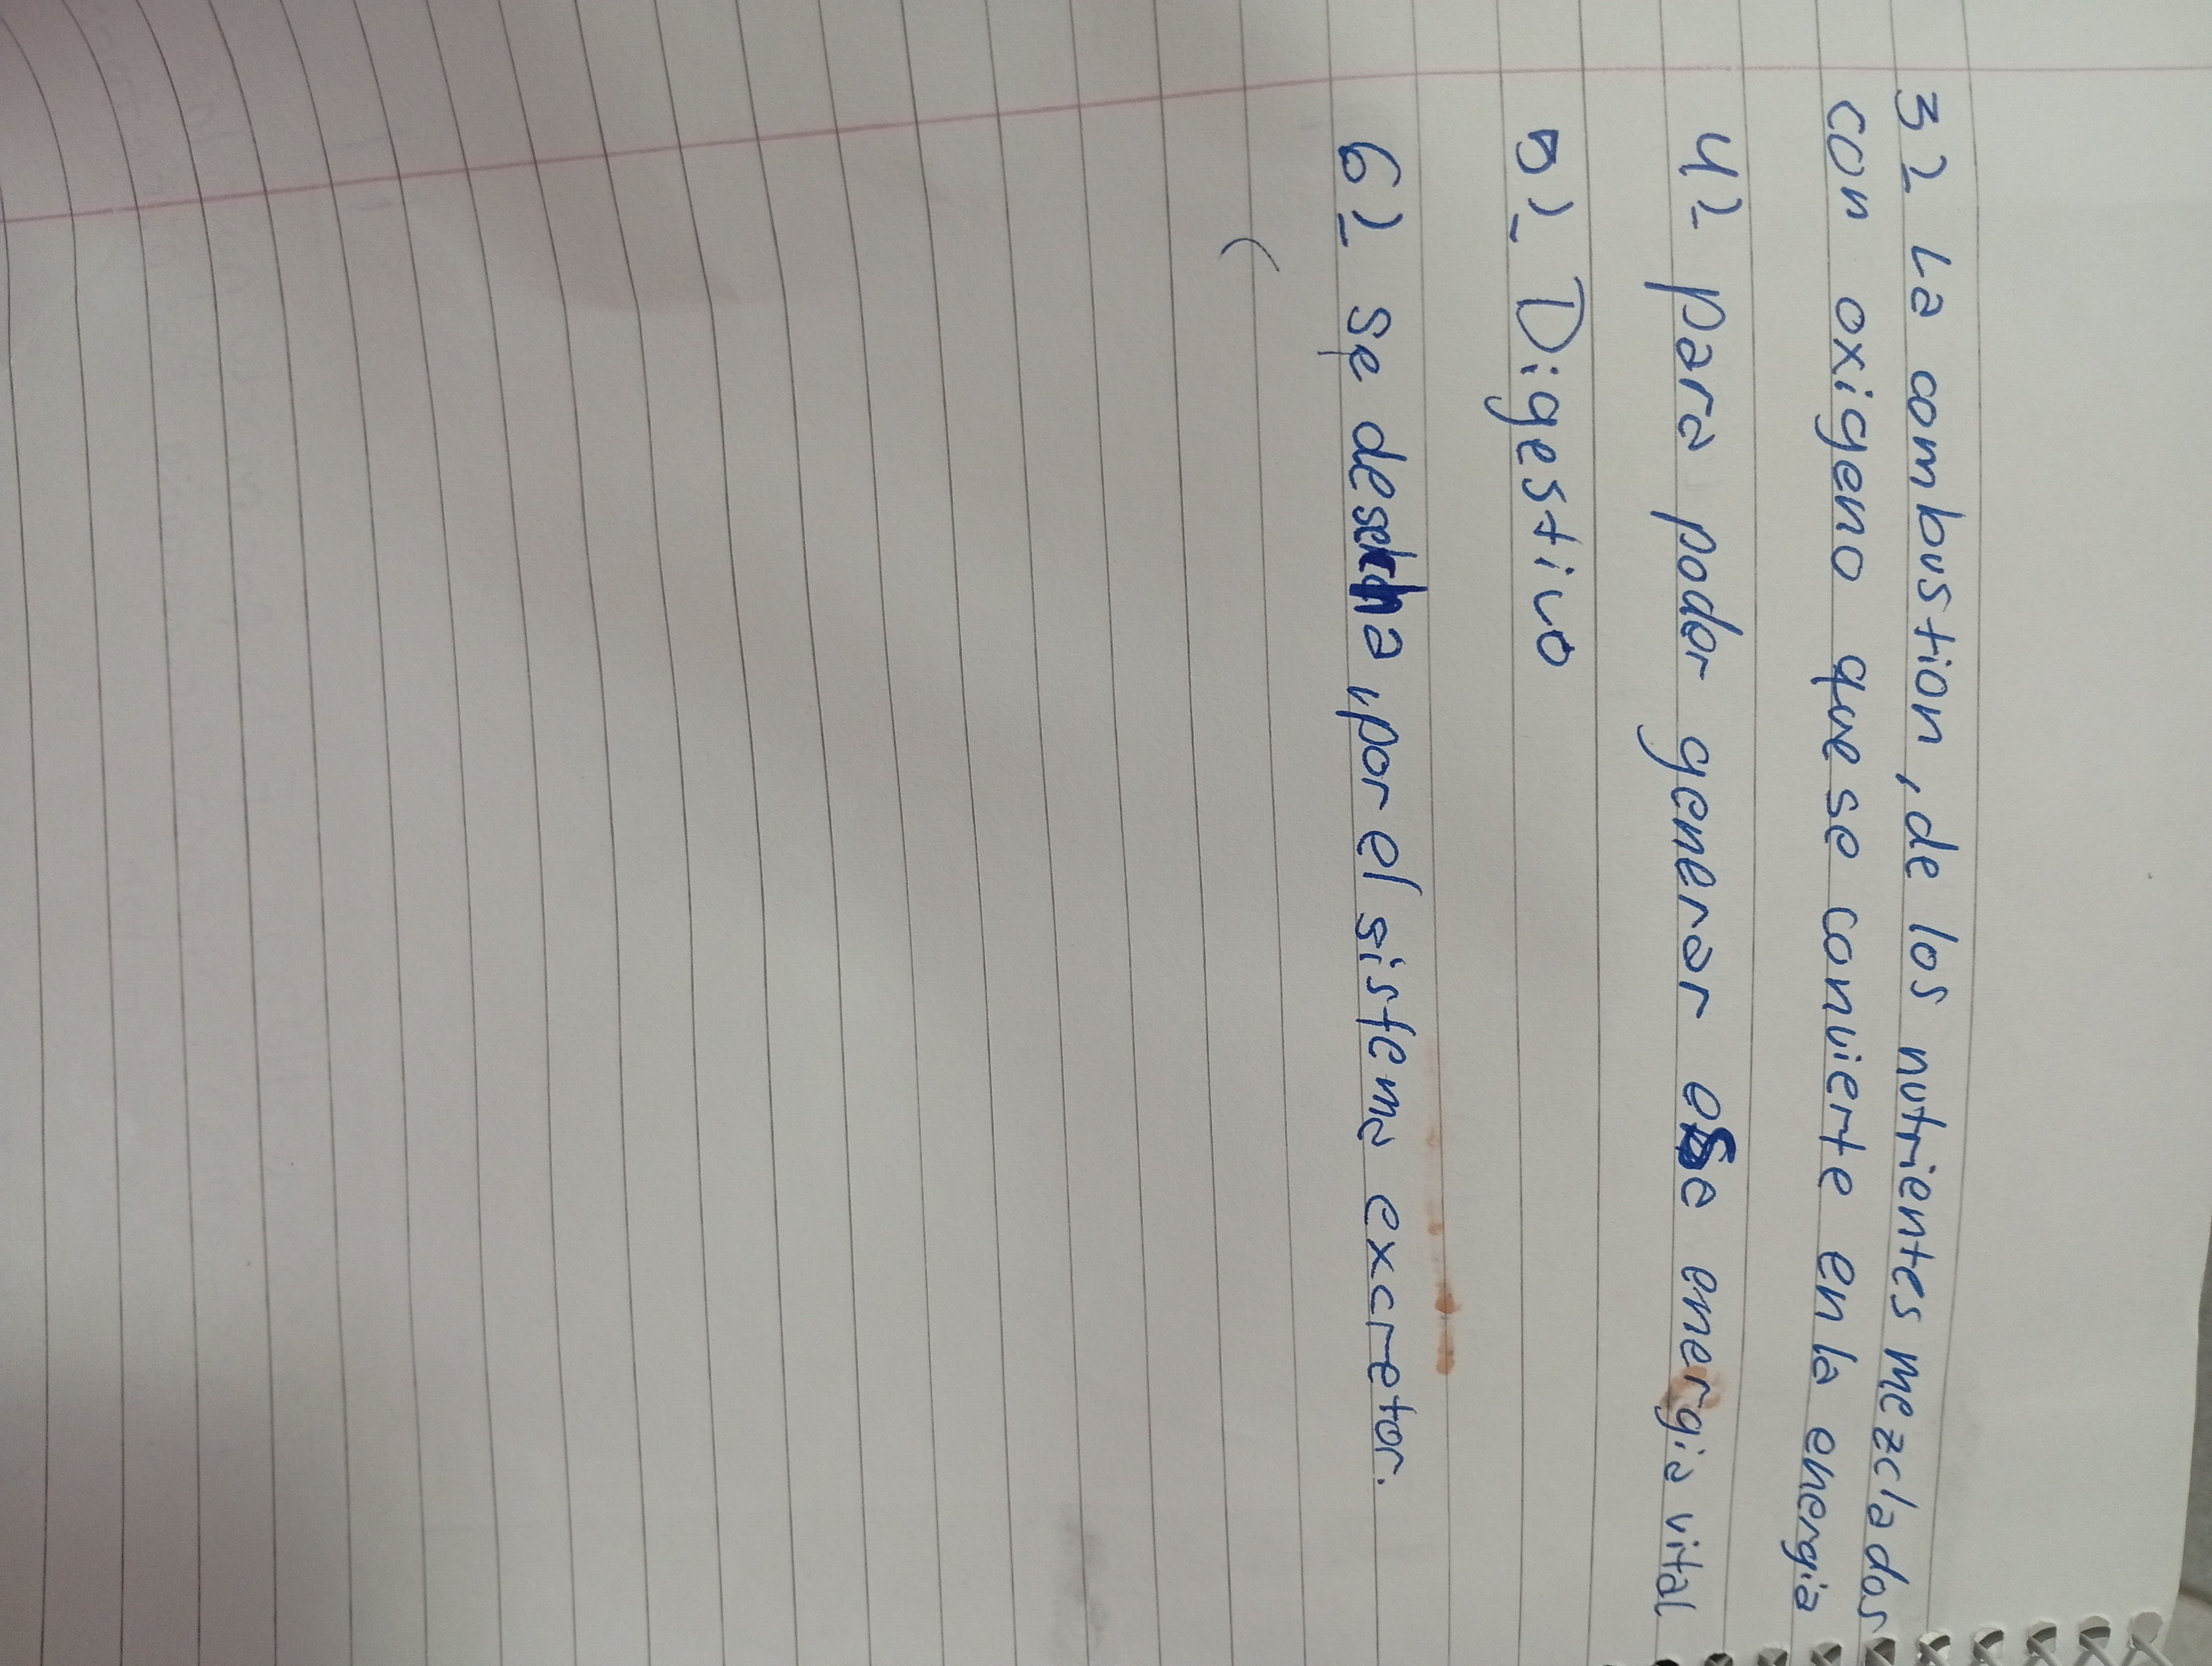 3)_ La combustion, de los nutrientes mezclados
con oxigeno que se convierte en la energia
4)_ para poder generar ese energia vital
5)_ Digestivo
6)_ se descha, por el sistema excretor.
(